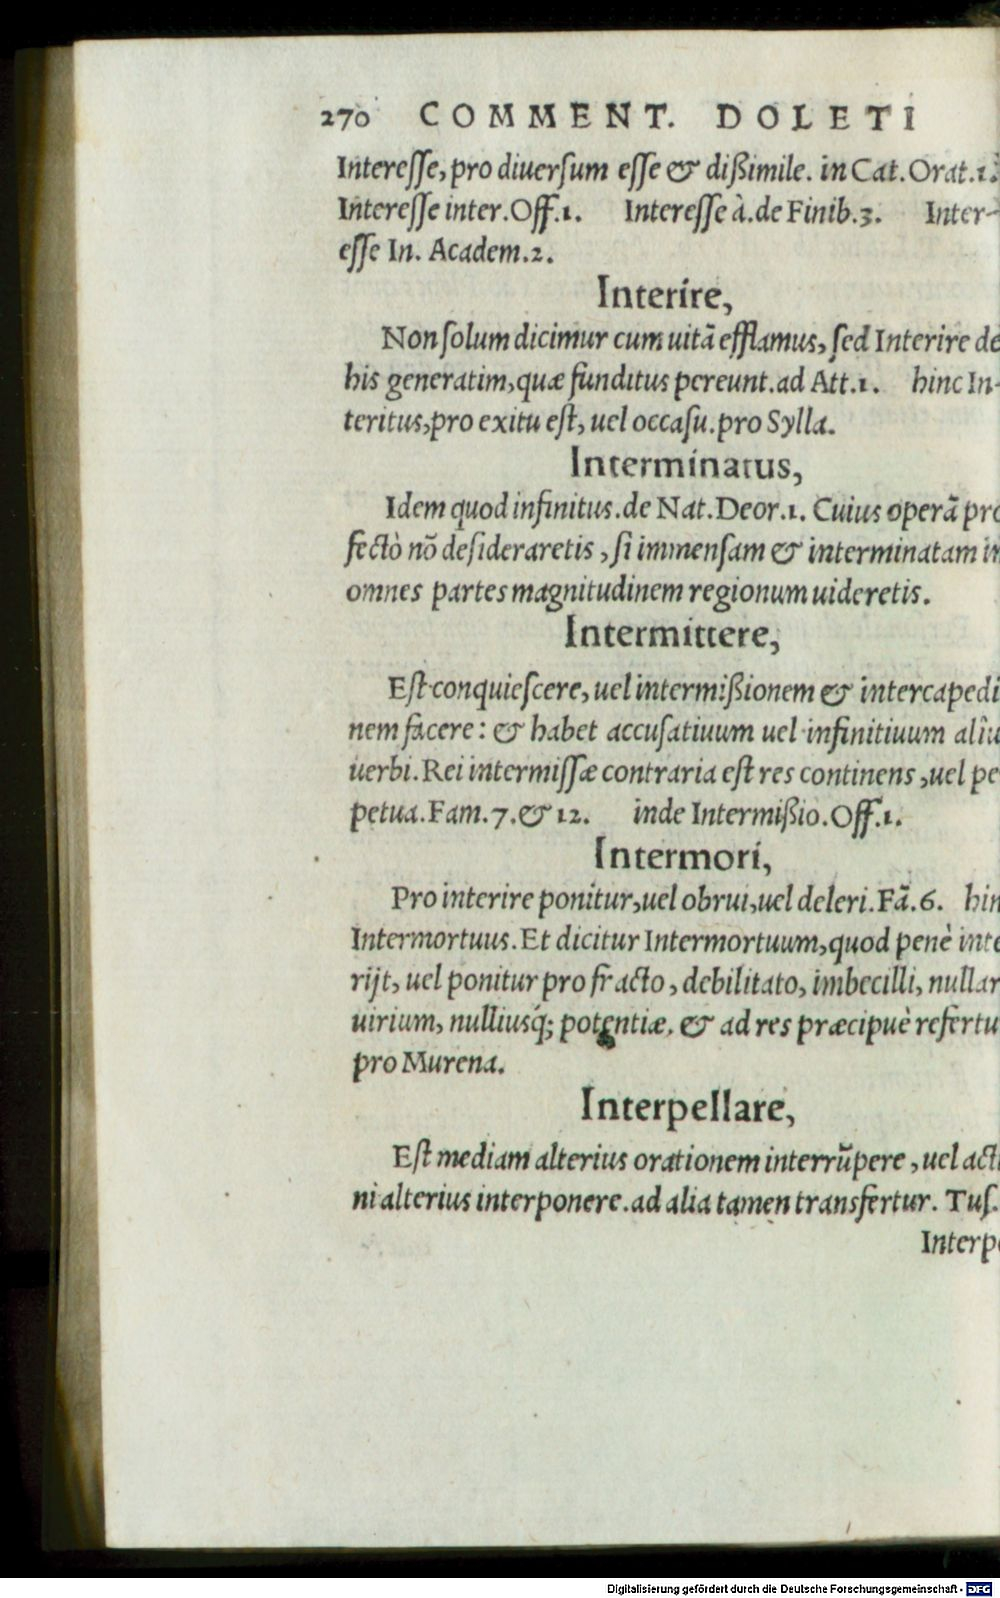 270 COMMENT. DOLETI
Interesſe, pro diuerſum eſſe & dißimile. in Cat. Orat.1.
Intereſſe inter. Off.1. Intereſſe à. de Finib.3. Inter-
eſſe In. Academ.2.
Interire,
Non ſolum dicimur cum uitã efflamus, ſed Interire de
his generatim, quæ funditus pereunt. ad Att.1. hinc In-
teritus, pro exitu eſt, uel occaſu. pro Sylla.
Interminatus,
Idem quod infinitus. de Nat. Deor.1. Cuius operã pro
fectò nõ deſideraretis, ſi immenſam & interminatam in
omnes partes magnitudinem regionum uideretis.
Intermittere,
Eſt conquieſcere, uel intermißionem & intercapedi
nem facere: & habet accuſatiuum uel infinitiuum aliu
uerbi. Rei intermiſſæ contraria eſt res continens, uel pe
petua. Fam.7. & 12. inde Intermißio. Off.1.
Intermori,
Pro interire ponitur, uel obrui, uel deleri. Fã.6. hin
Intermortuus. Et dicitur Intermortuum, quod penè inte
rijt, uel ponitur pro fracto, debilitato, imbecilli, nullar
uirium, nulliusq́; potentiæ. & ad res præcipuè refertu
pro Murena.
Interpellare,
Eſt mediam alterius orationem interrũpere, uel acti
ni alterius interponere. ad alia tamen transfertur. Tuſ.
Interpe
Digitalisierung gefördert durch die Deutsche Forschungsgemeinschaft - DFG